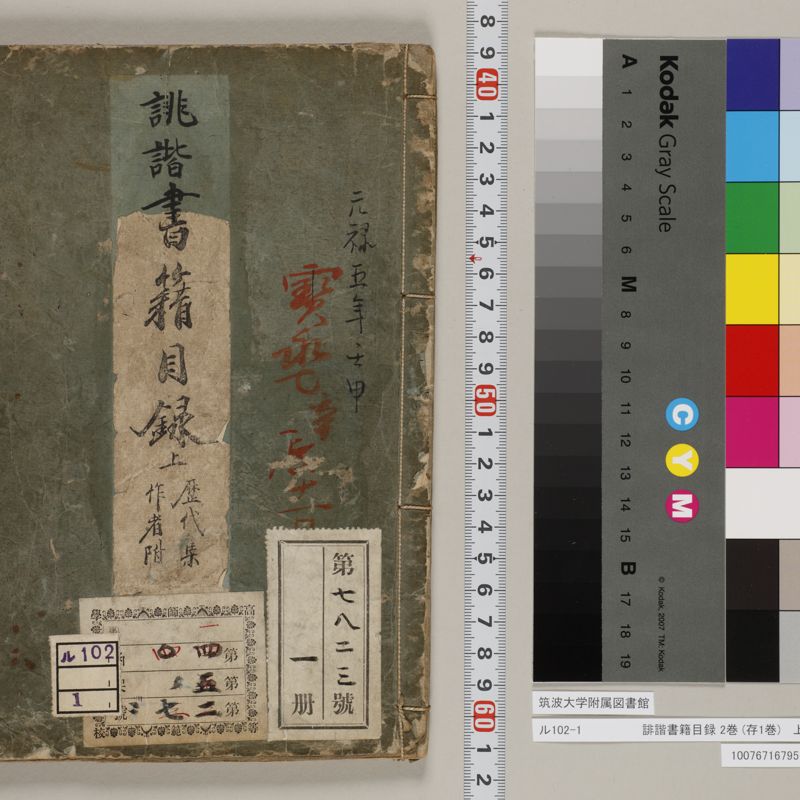 誹諧書籍目録 上
歴代集
作者附
元禄五年壬申
寳
第七八二三號
一册
高等師範學校
第
第
第
ル102
1
8
9
40
1
2
3
4
5
6
7
8
9
50
1
2
3
4
5
6
7
8
9
60
1
2
Kodak Gray Scale
A 1 2 3 4 5 6 M 8 9 10 11 12 13 14 15 B 17 18 19
C Y M
© Kodak, 2007 TM: Kodak
筑波大学附属図書館
ル102-1 誹諧書籍目録 2巻(存1巻) 上
10076716795